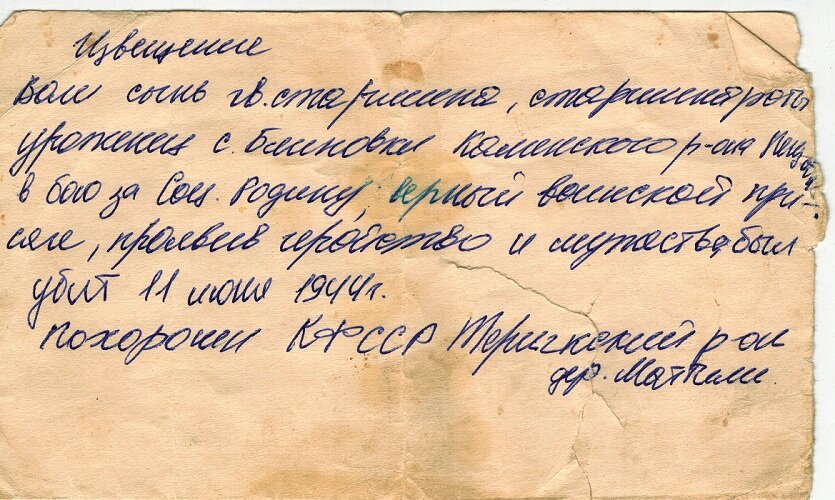 Извещение
Ваш сынь гв. старшина, старшина роты
уроженец с. Блиновки Каменского р-она Пенз. обл.
в бою за Соц. Родину, верный воинской при-
сяге, проявив геройство и мужество, был
убит 11 июня 1944 г.
похоронен КФССР Теригкский р он
дер. Маттила.